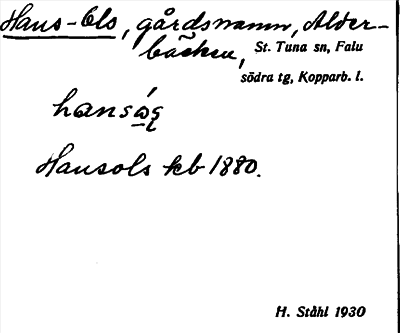 Hans-Ols, gårdsnamn, Alder-
bäcken, St. Tuna sn, Falu
södra tg, Kopparb. l.
Hansols kb 1880.
H. Ståhl 1930